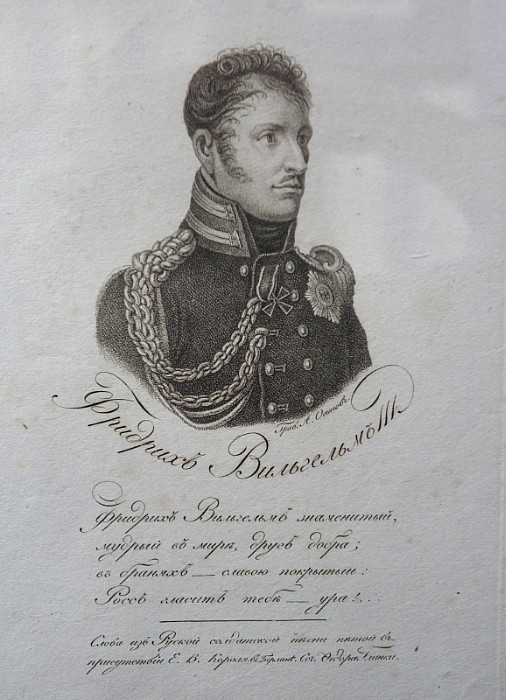 Грав. А. Осипов.
Фридрихъ Вильгельмъ III.
Фридрихъ Вильгельмъ знаменитый,
мудрый въ мирѣ, другъ добра;
въ браняхъ — славою покрытый:
Россъ гласитъ тебѣ — ура!..
Слова изъ Руской солдатской пѣсни пѣтой въ
присутствіи Е. В. Короля въ Берлинѣ. Соч. Ѳедора Глинки.